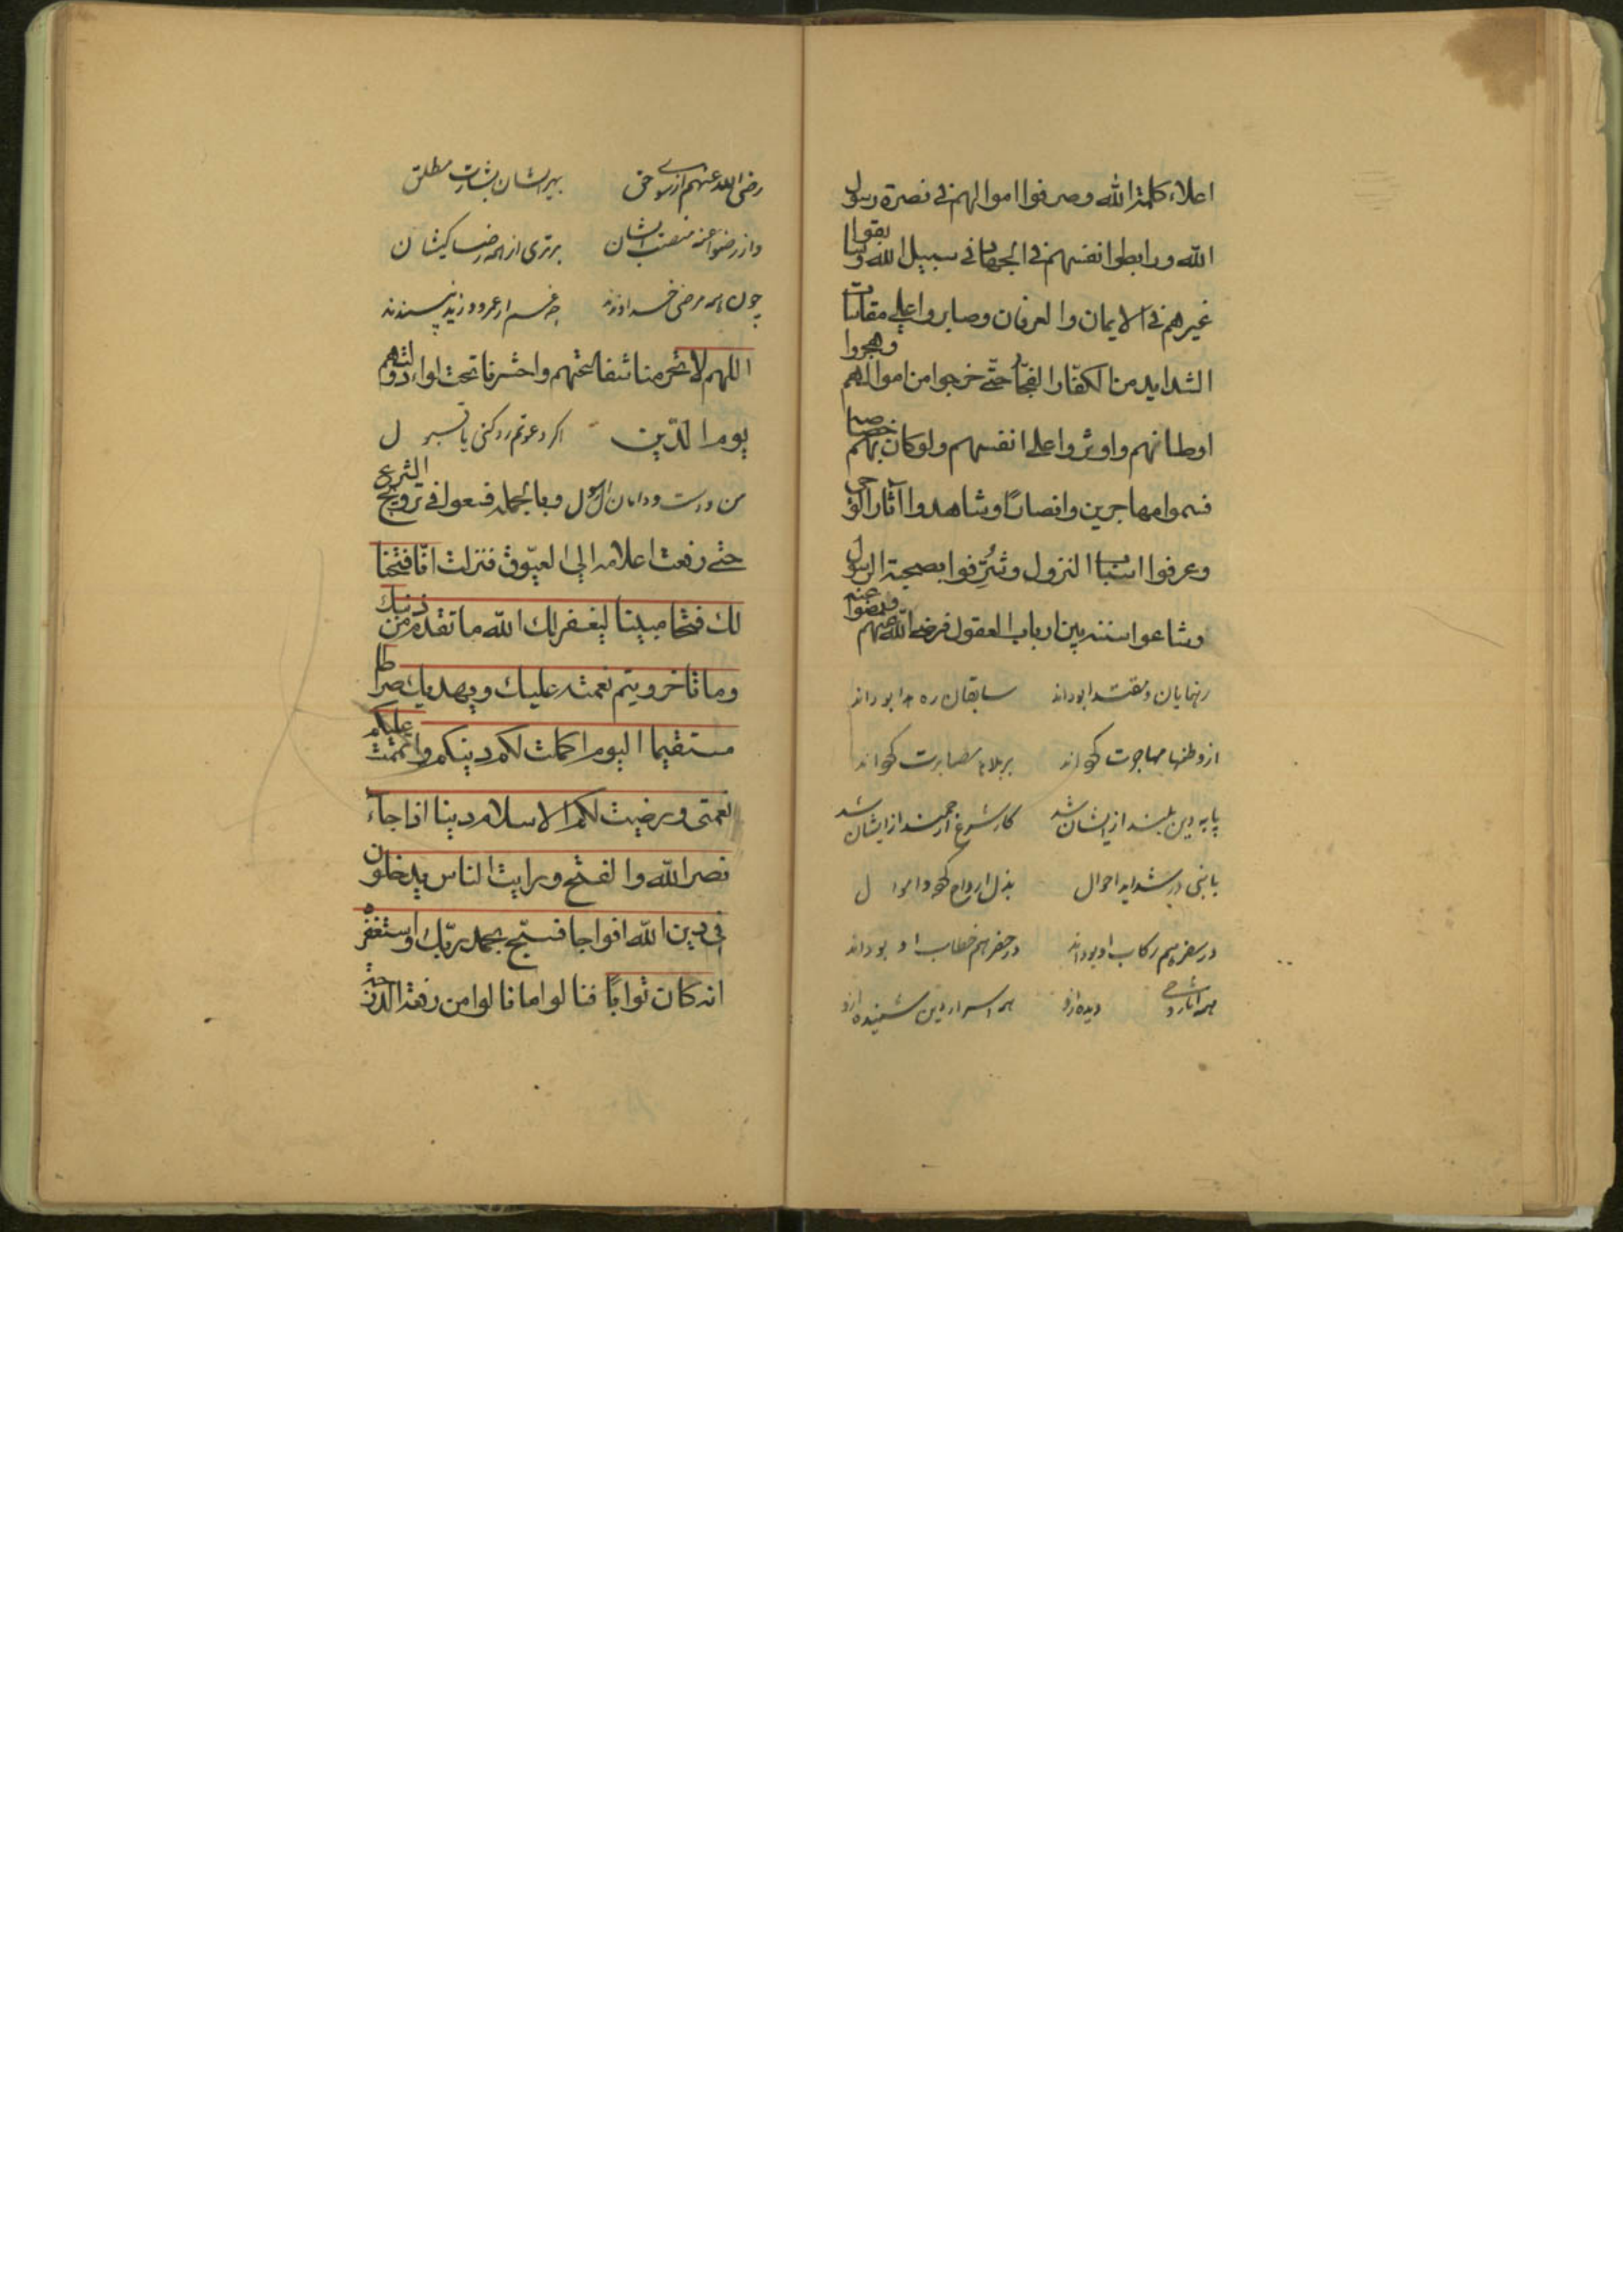 اعلاء كلمة الله وصرفوا اموالهم فی نصرة رسول
الله ورابطوا انفسهم فی الجهاد فی سبیل الله وسابقوا
غیرهم فی الایمان والعرفان وصابروا علی مقاسات
الشداید من الكفّار الفجّار حتّی خرجوا من اموالهم وهجروا
اوطانهم واوثروا علی انفسهم ولو كان بهم خصاصة
فسموا مهاجرین وانصارًا وشاهدوا آثار الوحی
وعرفوا اسباب النزول وشُرِّفوا بصحبة الرسول
وشاعوا سننه بین ارباب العقول فرضی الله عنهم ورضوا عنه
رهنمایان ومقتدا بودند سابقان ره خدا بودند
از وطنها مهاجرت كرده اند بر بلاها مصابرت كرده اند
پایه دین بلند ازایشان شد كار شرع ارجمند ازایشان شد
با نبی در شداید احوال بذل ارواح كرده واموال
در سفر هم ركاب او بوده اند در حضر هم خطاب او بوده اند
همه آثار وحی دیده ازو همه اسرار دین شنیده ازو
رضی الله عنهم از سوی حق بهر ایشان بشارت مطلق
واز رضوا عنه منصب ایشان برتری از همه رضا كیشان
چون همه مرضی خداوندند چه غم ار عمرو وزید نپسندند
اللهم لا تحرمنا شفاعتهم واحشرنا تحت لواء دولتهم
یوم الدّین اكر دعوتم رد كنی یا قبول
من ودست ودامان آل رسول وبالجملة فسعوا فی ترویج الشرع
حتی رفعت اعلامه الی العیّوق فنزلت انّا فتحنا
لك فتحا مبینا لیغفر لك الله ما تقدم من ذنبك
وما تاخر ویتم نعمته علیك ویهدیك صراطا
مستقیما الیوم اكملت لكم دینكم واتممت علیكم
نعمتی ورضیت لكم الاسلام دینا اذا جاء
نصر الله والفتح ورایت الناس یدخلون
فی دین الله افواجا فسبّح بحمد ربّك واستغفره
انه كان توابًا فنالوا ما نالوا من رفعة الدین